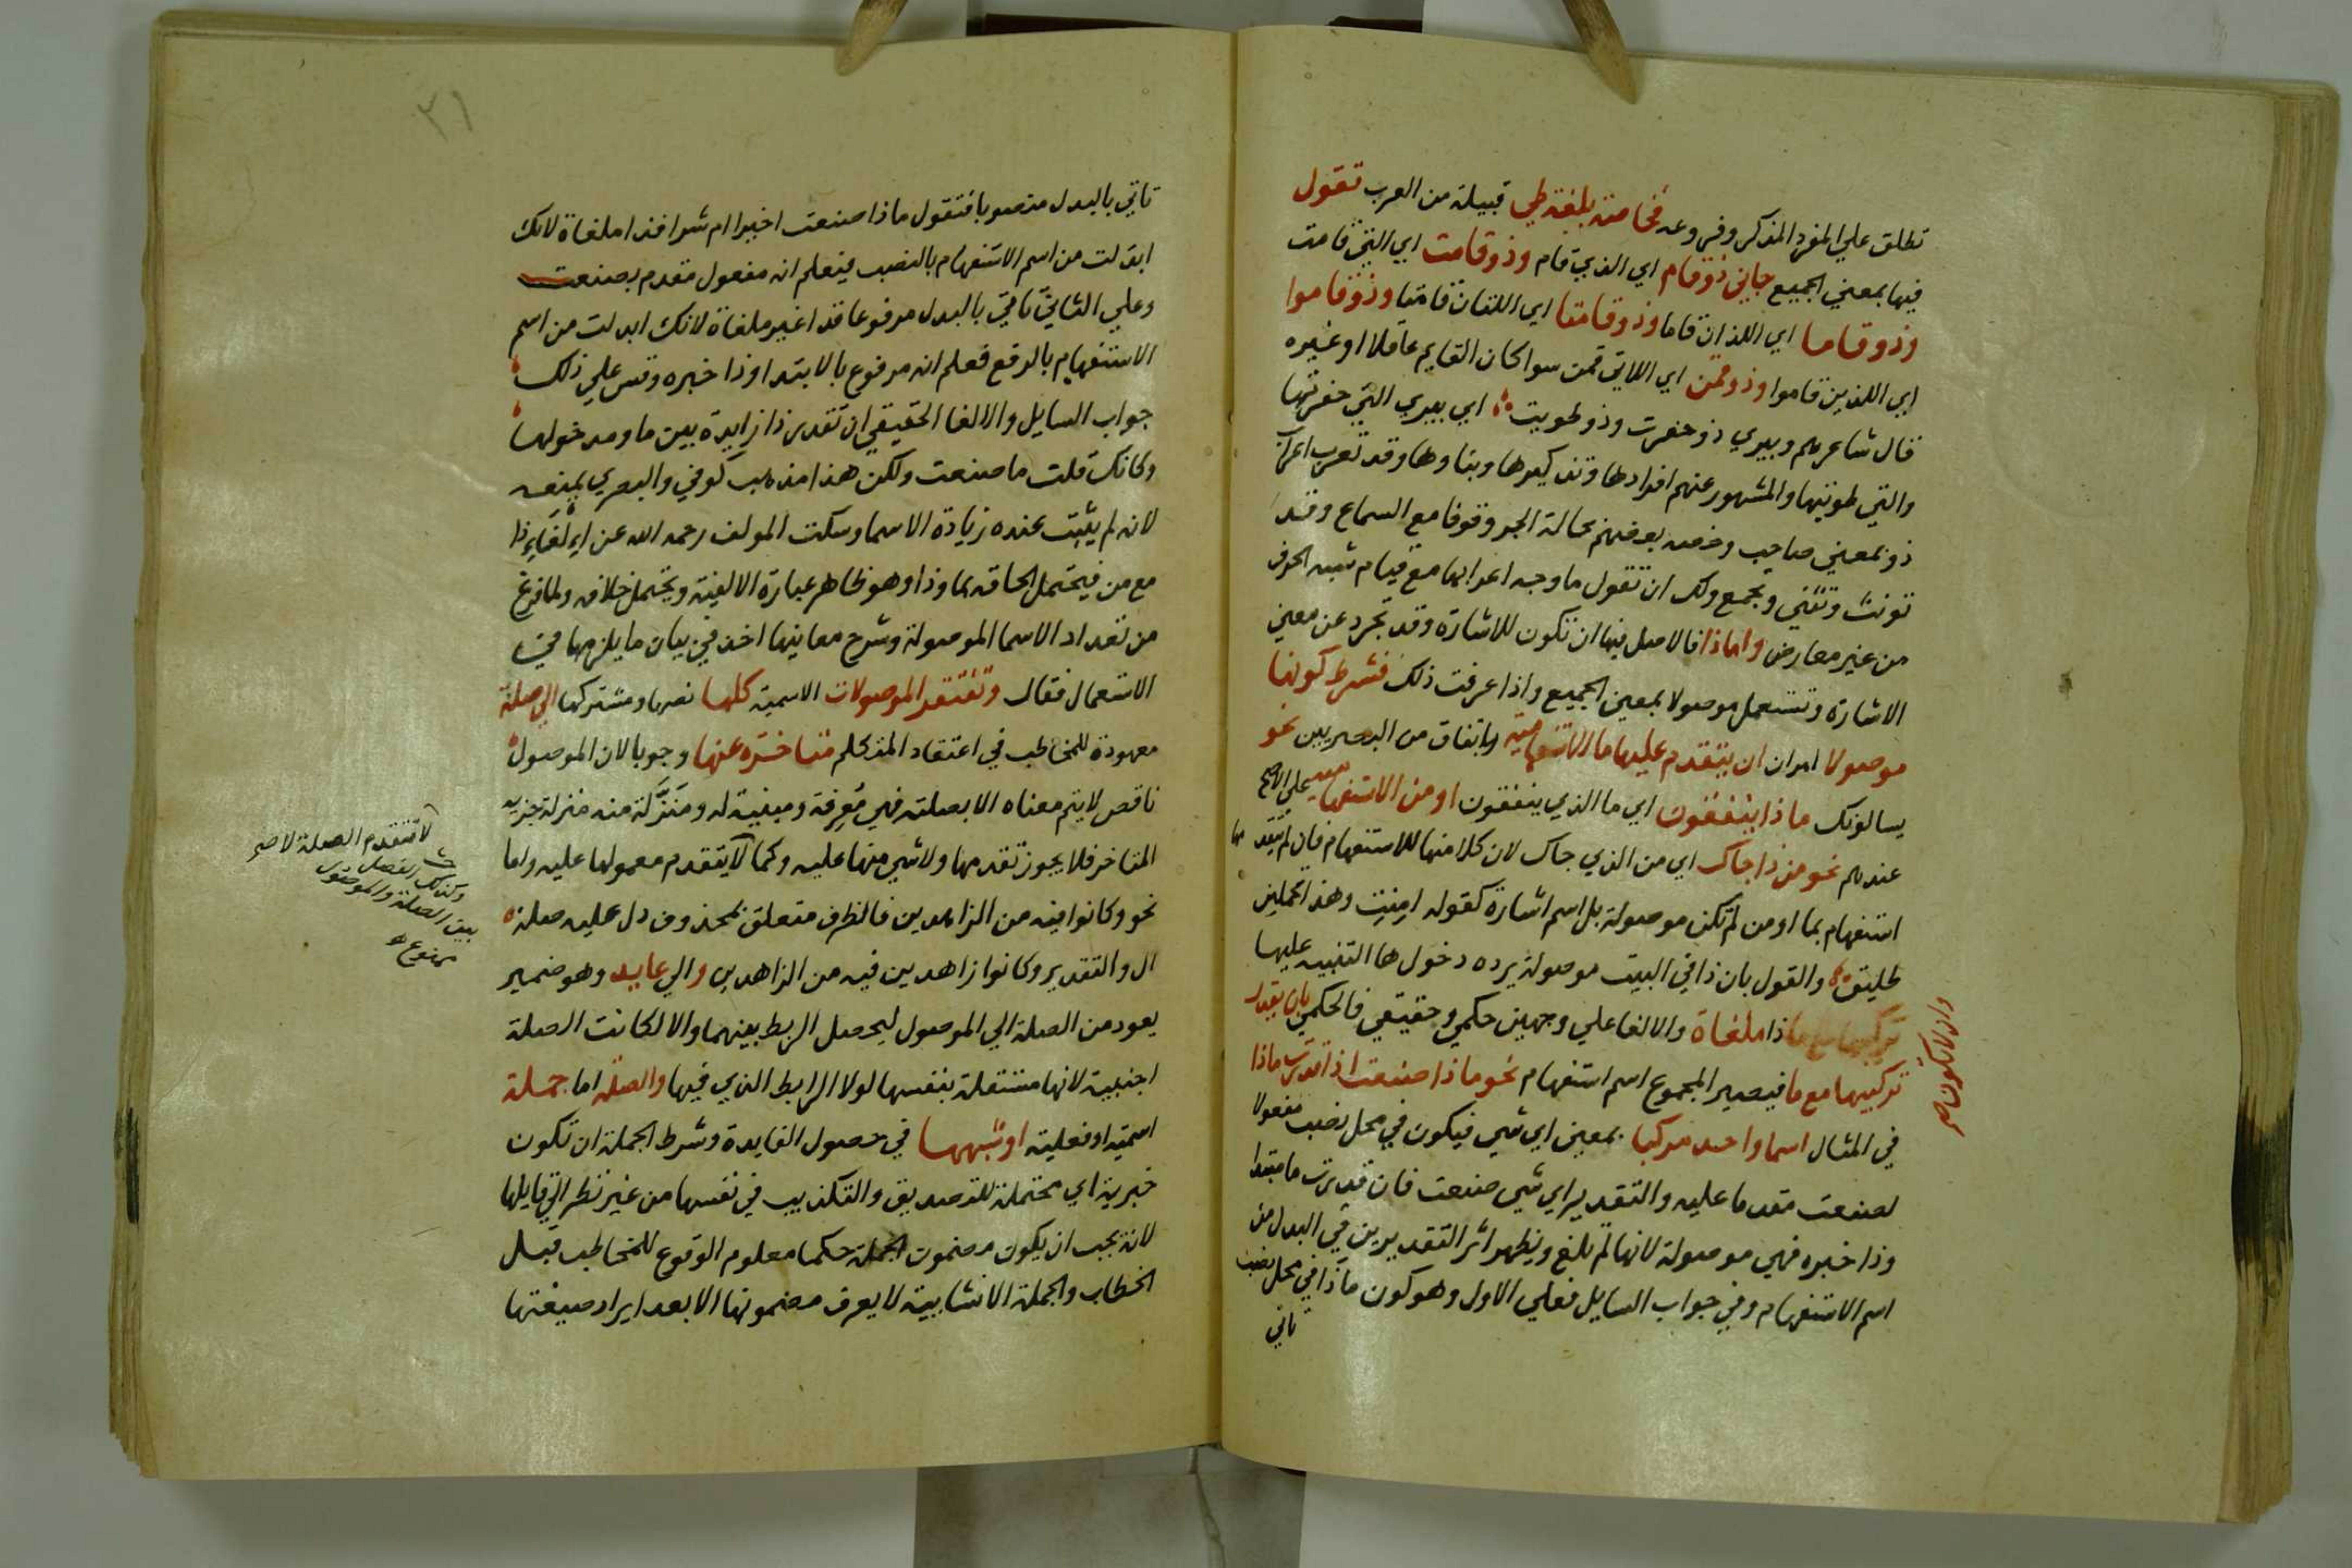 تطلق علي المفرد المذكر وفروعه فخاصته بلغة طي قبيلة من العرب تقول
فيها بمعني الجميع جاني ذوقام اي الذي قام وذوقامت اي التي قامت
وذوقاما اي اللذان قاما وذوقامتا اي اللتان قامتا وذوقاموا
اي اللذين قاموا وذوقمن اي اللاتي قمن سوا كان القايم عاقلا او غيره
قال شاعرهم وبيري ذو حفرت وذو طويت اي بيري التي حفرتها
والتي طويتها والمشهور عنهم افرادها وتذكيرها وبناوها وقد تعرب اعراب
ذو بمعني صاحب وخصه بعضهم بحالة الجر وقوفا مع السماع وقد
تونث وتثني وتجمع ولك ان تقول ما وجه اعرابها مع قيام شبه الحرف
من غير معارض واماذا فالاصل فيها ان تكون للاشارة وقد تجرد عن معني
الاشارة وتستعمل موصولا بمعني الجميع واذا عرفت ذلك فشرط كونها
موصولا امران ان يتقدم عليها ما الاستفهامية باتفاق من البصريين نحو
يسالونك ماذا ينفقون اي ما الذي ينفقون او من الاستفهامية علي الاصح
عندهم نحو من ذا جاك اي من الذي جاك لان كلا منها للاستفهام فان لم يتقدمها
استفهام بما او من لم تكن موصولة بل اسم اشارة كقوله امنت وهذا تحملين
طليق والقول بان ذا في البيت موصولة يرده دخول ها التنبيه عليها
وان لا تكون صح
ذا ملغاة والالغا علي وجهين حكمي وحقيقي فالحكمي بان يقدر
تركيبها مع ما فيصير المجموع اسم استفهام نحو ماذا صنعت اذا قدرت ماذا
في المثال اسما واحد مركبا بمعني اي شي فيكون في محل نصب مفعولا
لصنعت مقدما عليه والتقدير اي شي صنعت فان قدرت ما مبتدا
وذا خبره فهي موصولة لانها لم تلغ ويظهر اثر التقديرين في البدل من
اسم الاستفهام وفي جواب السايل فعلي الاول وهو كون ماذا في محل نصب
تاتي
٣١
تاتي بالبدل منصوبا فتقول ماذا صنعت اخيرا ام شرا فذا ملغاة لانك
ابدلت من اسم الاستفهام بالنصب فيعلم انه مفعول مقدم بصنعت
وعلي الثاني تاتي بالبدل مرفوعا فذا غير ملغاة لانك ابدلت من اسم
الاستفهام بالرفع فعلم انه مرفوع بالابتدا وذا خبره وقس علي ذلك
جواب السايل والالغا الحقيقي ان تقدر ذا زايدة بين ما ومدخولها
وكانك قلت ما صنعت ولكن هذا مذهب كوفي والبصري يمنعه
لانه لم يثبت عنده زيادة الاسما وسكت المولف رحمه الله عن الغاء ذا
مع من فيحتمل الحاقه بما وذا وهو ظاهر عبارة الالفية ويحتمل خلافه ولما فرغ
من تعداد الاسما الموصولة وشرح معانيها اخذ في بيان ما يلزمها في
الاستعمال فقال وتفتقر الموصولات الاسمية كلها نصها ومشتركها الي صلة
معهودة للمخاطب في اعتقاد المتكلم متاخرة عنها وجوبا لان الموصول
ناقص لا يتم معناه الا بصلته فهي معرفة ومبنية له ومنزلة منه منزلة جزيه
المتاخر فلا يجوز تقدمها ولا شي منها عليه وكما لا يتقدم معمولها عليه واما
نحو وكانوا فيه من الزاهدين فالظرف متعلق بمحذوف دل عليه صلة
ال والتقدير وكانوا زاهدين فيه من الزاهدين والي عايد وهو ضمير
يعود من الصلة الي الموصول ليحصل الربط بينهما والا لكانت الصلة
اجنبية لانها مستقلة بنفسها لولا الرابط الذي فيها والصلة اما جملة
اسمية او فعلية او شبهها في حصول الفايدة وشرط الجملة ان تكون
خبرية اي محتملة للتصديق والتكذيب في نفسها من غير نظر الي قايلها
لانه يجب ان يكون مضمون الجملة حكما معلوم الوقوع للمخاطب قبل
الخطاب والجملة الانشايية لا يعرف مضمونها الا بعد ايراد صيغتها
لا تتقدم الصلة لا صح
وكذلك الفصل
بين الصلة والموصول
ممنوع